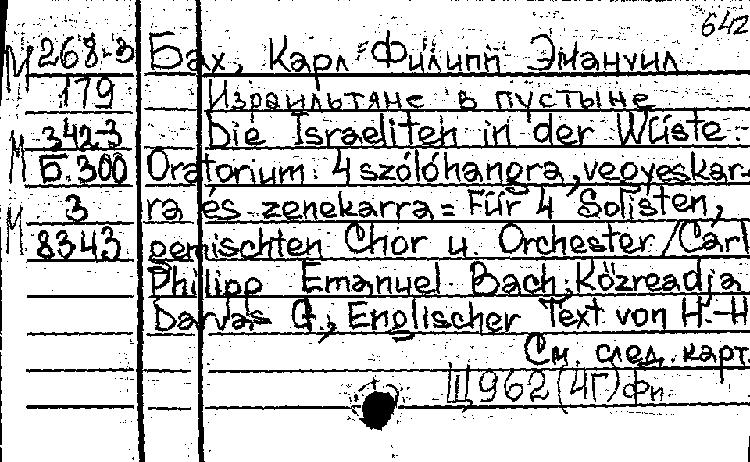 642
М 268-3 Бах, Карл Филипп Эмануил
179 Израильтяне в пустыне
М 342-3 Die Israeliten in der Wüste.
Б.300 Oratorium. 4 szólóhangra, vegyeskar-
М 3 ra és zenekarra = Für 4 Solisten,
8343 gemischten Chor u. Orchester/Carl
Philipp Emanuel Bach. Közreadja
Darvas G., Englischer Text von H.-H
См. след. карт.
Щ962(4Г)фи